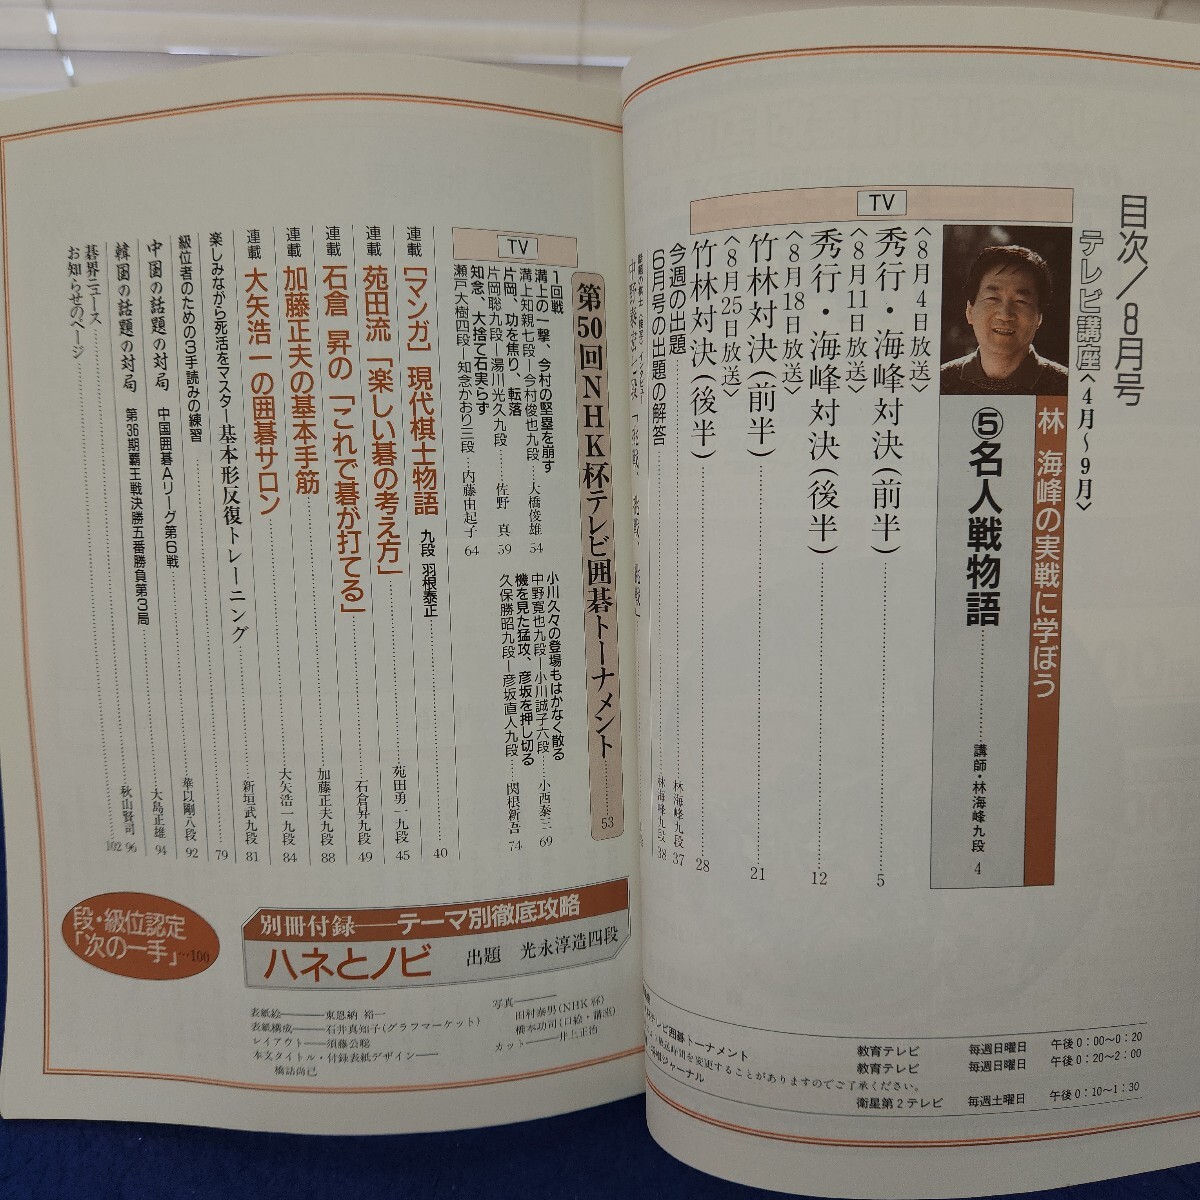 目次/8月号
テレビ講座〈4月～9月〉
林 海峰の実戦に学ぼう
⑤名人戦物語
講師・林海峰九段 4
TV
〈8月4日放送〉
秀行・海峰対決(前半) 5
〈8月11日放送〉
秀行・海峰対決(後半) 12
〈8月18日放送〉
竹林対決(前半) 21
〈8月25日放送〉
竹林対決(後半) 28
今週の出題 林海峰九段 37
6月号の出題の解答 林海峰九段 38
教育テレビ 毎週日曜日 午後0:00～0:20
テレビ囲碁トーナメント 教育テレビ 毎週日曜日 午後0:20～2:00
放送時間を変更することがありますのでご了承ください。
ジャーナル 衛星第2テレビ 毎週土曜日 午後0:10～1:30
第50回NHK杯テレビ囲碁トーナメント 53
TV
1回戦
溝上の一撃、今村の堅塁を崩す
溝上知親七段―今村俊也九段 大橋俊雄 54
片岡、功を焦り、転落
片岡聡九段―湯川光久九段 佐野 真 59
知念、大捨て石実らず
瀬戸大樹四段―知念かおり三段 内藤由起子 64
小川久々の登場もはかなく散る
中野寛也九段―小川誠子六段 小西泰三 69
機を見た猛攻、彦坂を押し切る
久保勝昭九段―彦坂直人九段 関根新吾 74
連載 [マンガ] 現代棋士物語 九段 羽根泰正 40
連載 苑田流「楽しい碁の考え方」 苑田勇一九段 45
連載 石倉 昇の「これで碁が打てる」 石倉昇九段 49
連載 加藤正夫の基本手筋 加藤正夫九段 88
連載 大矢浩一の囲碁サロン 大矢浩一九段 84
楽しみながら死活をマスター基本形反復トレーニング 新垣武九段 81
79
級位者のための3手読みの練習 華以剛八段 92
中国の話題の対局 中国囲碁Aリーグ第6戦 大島正雄 94
韓国の話題の対局 第36期覇王戦決勝五番勝負第3局 秋山賢司 96
碁界ニュース
お知らせのページ 102
段・級位認定
「次の一手」…100
別冊付録――テーマ別徹底攻略
ハネとノビ 出題 光永淳造四段
表紙絵―――東恩納 裕一
表紙構成――石井真知子(グラフマーケット)
レイアウト――須藤公聡
本文タイトル・付録表紙デザイン――
橋詰尚己
写真―――
田村泰男(NHK杯)
橋本功司(口絵・講座)
カット――井上正治